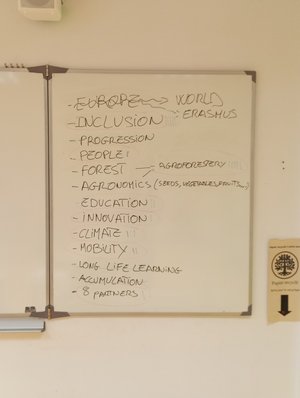 - EUROPE → WORLD
- INCLUSION : ERASMUS
- PROGRESSION
- PEOPLE
- FOREST - AGROFORESTRY
- AGRONOMICS (SEEDS, VEGETABLES, FRUITS...)
EDUCATION
- INNOVATION
- CLIMATE
- MOBILITY
- LONG LIFE LEARNING
- ACCUMULATION
- 8 PARTNERS